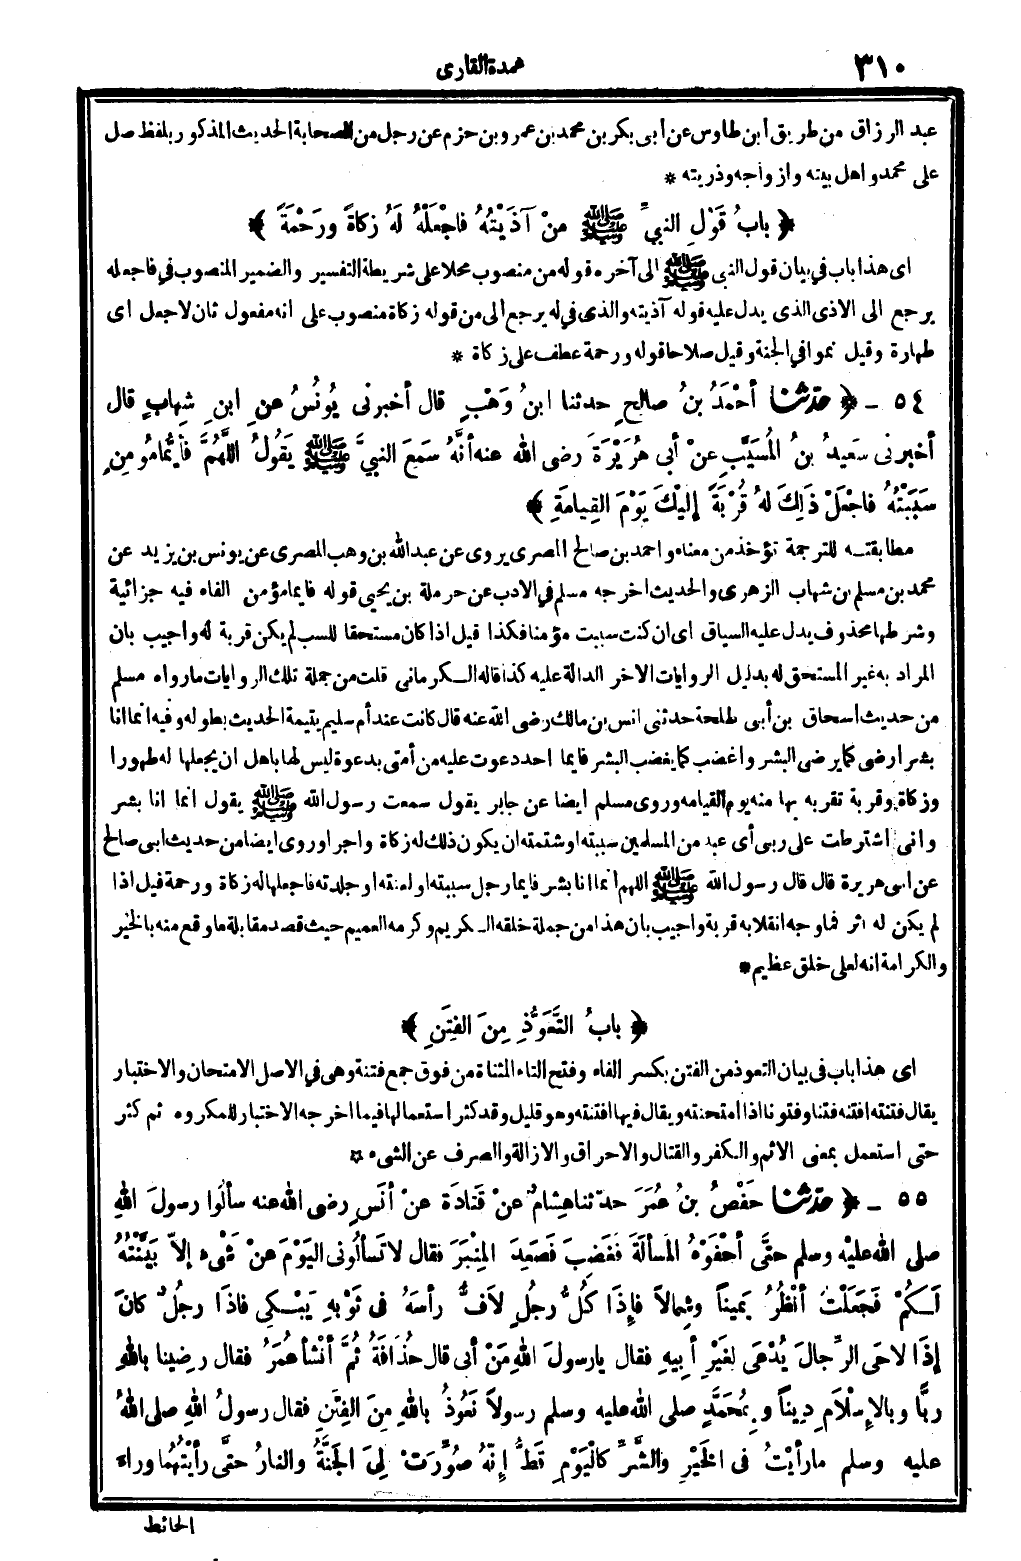 ٣١٠
عمدة القارى
عبد الرزاق من طريق أبن طاوس عن أبى بكر بن محمد بن عمرو بن حزم عن رجل من الصحابة الحديث المذكور بلفظ صل
على محمد واهل بيته وازواجه وذريته *
﴿ بابُ قَوْلِ النبيِّ ﷺ مَنْ آذَيْتُهُ فاجْعَلْهُ لَهُ زكاةً ورَحْمَةً ﴾
اى هذا باب في بيان قول النبى ﷺ الى آخره قوله من منصوب محلا على شريطة التفسير والضمير المنصوب في فاجعله
يرجع الى الاذى الذى يدل عليه قوله آذيته والذى في له يرجع الى من قوله زكاة منصوب على انه مفعول ثان لاجعل اى
طهارة وقيل نموا في الجنة وقيل صلاحا قوله ورحمة عطف على زكاة *
٥٤ ـ ﴿ حدثنا أحْمَدُ بنُ صالحٍ حدثنا ابنُ وَهْبٍ قال أخبرنى يُونُسُ عنِ ابنِ شِهابٍ قال
أخبرنى سَعيدُ بنُ المُسَيَّبِ عنْ أبى هُرَيْرَةَ رضى الله عنه أنَّهُ سَمَعَ النبيَّ ﷺ يَقُولُ اللَّهُمَّ فأيُّمامُومِنٍ
سَبَبْتُهُ فاجْعَلْ ذَلِكَ لهُ قُرْبَةً إلَيْكَ يَوْمَ القِيامَةِ ﴾
مطابقته للترجمة تؤخذ من معناه واحمد بن صالح المصرى يروى عن عبد الله بن وهب المصرى عن يونس بن يزيد عن
محمد بن مسلم بن شهاب الزهرى والحديث اخرجه مسلم في الادب عن حرملة بن يحيى قوله فايما مؤمن الفاء فيه جزائية
وشرطها محذوف يدل عليه السياق اى ان كنت سببت مؤمنا فكذا قيل اذا كان مستحقا للسب لم يكن قربة له واجيب بان
المراد به غير المستحق له بدليل الروايات الاخر الدالة عليه كذا قاله الكرمانى قلت من جملة تلك الروايات مارواه مسلم
من حديث اسحاق بن أبى طلحة حدثنى انس بن مالك رضى الله عنه قال كانت عند أم سليم يتيمة الحديث بطوله وفيه انما انا
بشر ارضى كما يرضى البشر واغضب كما يغضب البشر فايما احد دعوت عليه من أمتى بدعوة ليس لها باهل ان يجعلها له طهورا
وزكاة وقربة تقربه بها منه يوم القيامه وروى مسلم ايضا عن جابر يقول سمعت رسول الله ﷺ يقول انما انا بشر
وانى اشترطت على ربى أى عبد من المسلمين سببته او شتمته ان يكون ذلك له زكاة واجرا وروى ايضا من حديث ابى صالح
عن ابى هريرة قال قال رسول الله ﷺ اللهم انما انا بشر فايما رجل سببته او لعنته او جلدته فاجعلها له زكاة ورحمة قيل اذا
لم يكن له اثر فما وجه انقلابه قربة واجيب بان هذا من جملة خلقه الكريم وكرمه العميم حيث قصد مقابلة ما وقع منه بالخير
والكرامة انه لعلى خلق عظيم *
﴿ بابُ التَّعَوُّذِ مِنَ الفِتَنِ ﴾
اى هذا باب فى بيان التعوذ من الفتن بكسر الفاء وفتح التاء المثناة من فوق جمع فتنة وهى في الاصل الامتحان والاختبار
يقال فتنته افتنه فتنا وفتونا اذا امتحنته ويقال فيها افتنته وهو قليل وقد كثر استعمالها فيما اخرجه الاختبار للمكروه ثم كثر
حتى استعمل بمعنى الاثم والكفر والقتال والاحراق والازالة والصرف عن الشىء *
٥٥ ـ ﴿ حدثنا حَفْصُ بنُ عُمَرَ حدثنا هِشامٌ عنْ قَتادَةَ عنْ أنَسٍ رضى الله عنه سألُوا رسولَ اللهِ
صلى الله عليْه وسلم حتَّى أحْفَوْهُ المَسألَةَ فغَضِبَ فَصَعِدَ المِنْبَرَ فقال لا تَسألُونى اليَوْمَ عنْ شَىْءٍ إلاّ بَيَّنْتُهُ
لَكُمْ فَجَعَلْتُ أنْظُرُ يَمِيناً وشِمالاً فإذَا كُلُّ رجُلٍ لافٌّ رأسَهُ فى ثَوْبِهِ يَبْكِي فاذَا رجُلٌ كانَ
إذَا لاحَى الرِّجالَ يُدْعَى لِغَيْرِ أبِيهِ فقال يارسولَ اللهِ مَنْ أبى قال حُذافَةُ ثُمَّ أنْشأ عُمَرُ فقال رضِينا باللهِ
ربًّا وبالإسْلاَمِ دِيناً وبِمُحَمَّدٍ صلى الله عليه وسلم رسولاً نَعُوذُ باللهِ مِنَ الفِتَنِ فقال رسولُ اللهِ صلى اللهُ
عليه وسلم مارأيْتُ فى الخَيْرِ والشَّرِّ كالْيَوْمِ قَطُّ إنّهُ صُوِّرَتْ لِيَ الجَنَّةُ والنارُ حتَّى رأيْتُهُما وراءَ
الحائط